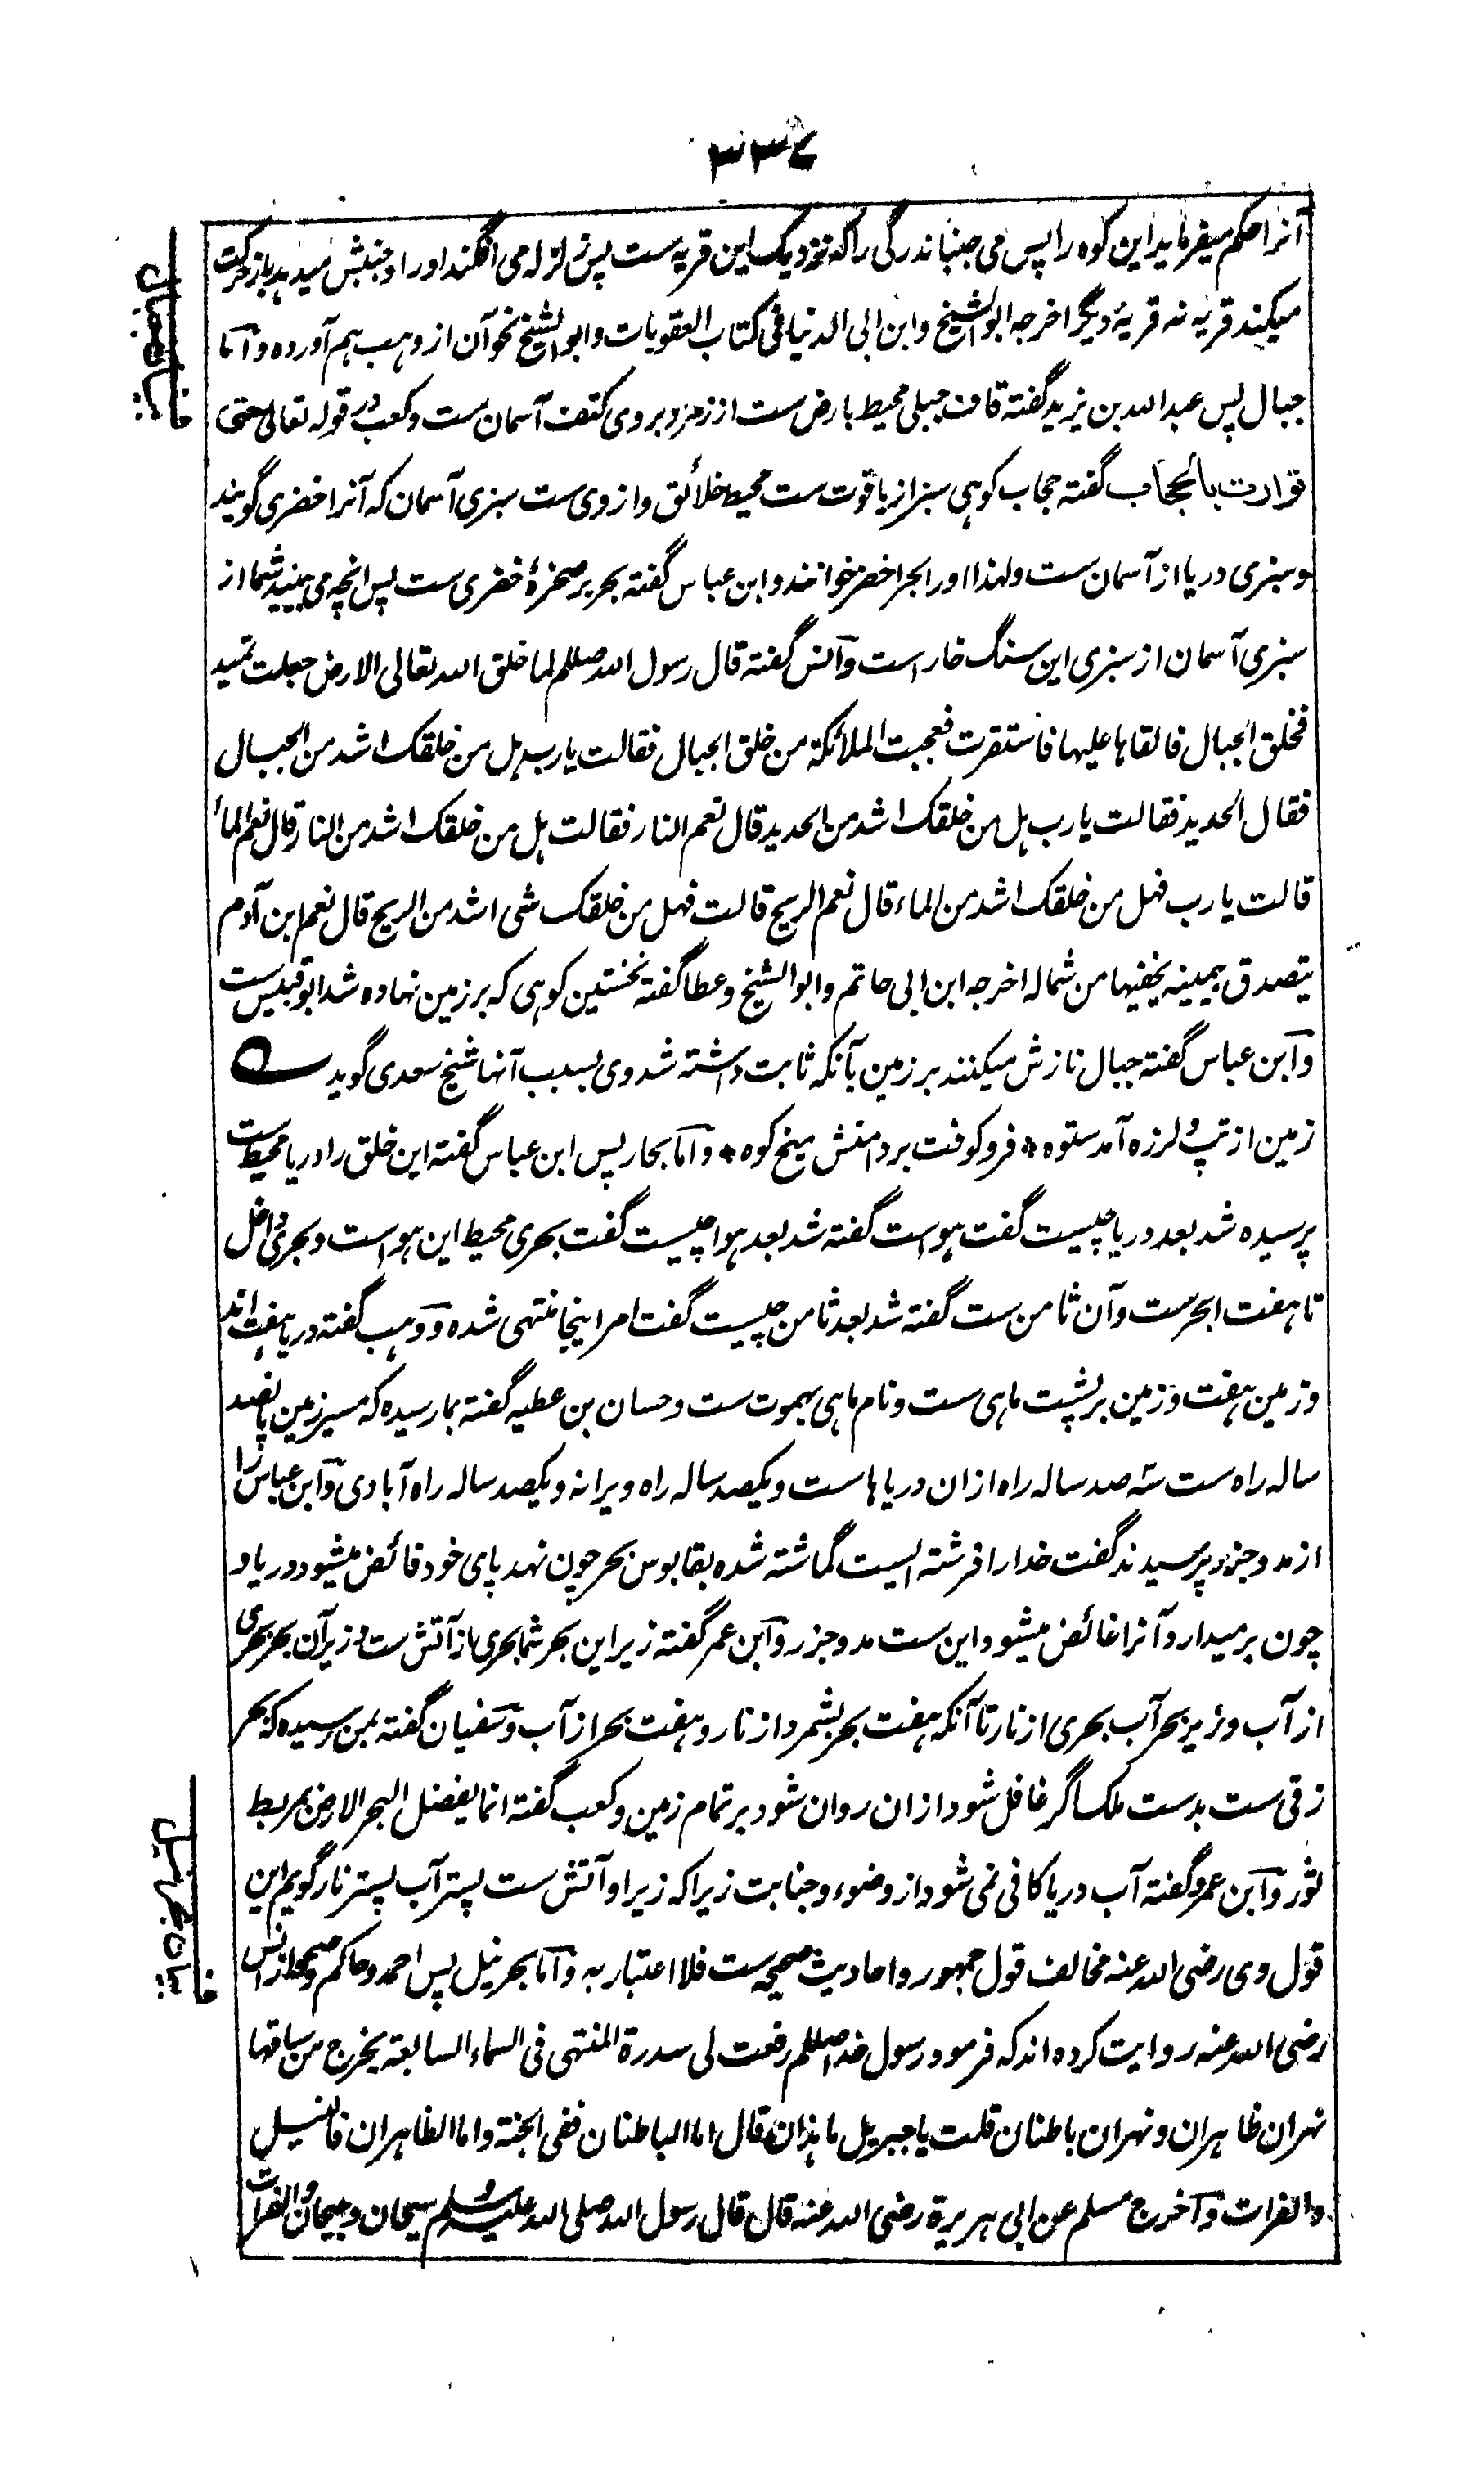 ۳۳۶
آنرا حکم میفرماید این کوه را پس می جنباند رگی را که نزدیک این قریه ست پس زلزله می افگند او را و جنبش میدهد باز حرکت
میکند قریه نه قریۀ دیگر اخرجه ابو الشیخ وابن ابی الدنیا فی کتاب العقوبات وابو الشیخ نحو آن از وهب هم آورده واما
بیان جبال
جبال پس عبد الله بن یزید گفته قاف جبلی محیط بارض ست از زمرد بروی کتف آسمان ست وکعب در قوله تعالی حتی
توارت بالحجاب گفته حجاب کوهی سبز از یاقوت ست محیط خلائق وازوی ست سبزی آسمان که آنرا خضری گویند
وسبزی دریا از آسمان ست ولهذا او را بحر اخضر خوانند وابن عباس گفته بحر بر صخرۀ خضری ست پس انچه می بینید شما از
سبزی آسمان از سبزی این سنگ خار است وانس گفته قال رسول الله صللم لما خلق الله تعالی الارض جعلت تمید
فخلق الجبال فالقاها علیها فاستقرت فعجبت الملائکة من خلق الجبال فقالت یا رب هل من خلقک اشد من الجبال
فقال الحدید فقالت یا رب هل من خلقک اشد من الحدید قال نعم النار فقالت هل من خلقک اشد من النار قال نعم الماء
قالت یا رب فهل من خلقک اشد من الماء قال نعم الریح قالت فهل من خلقک شی اشد من الریح قال نعم ابن آدم
یتصدق بیمینه یخفیها من شماله اخرجه ابن ابی حاتم وابو الشیخ وعطا گفته نخستین کوهی که بر زمین نهاده شد ابو قبیس ست
وابن عباس گفته جبال نازش میکنند بر زمین بآنکه ثابت داشته شد وی بسبب آنها شیخ سعدی گوید
زمین از تپ ولرزه آمد ستوه * فرو کوفت بر دامنش میخ کوه * واما بحار پس ابن عباس گفته این خلق را دریا محیط ست
پرسیده شد بعد دریا چیست گفت هواست گفته شد بعد هوا چیست گفت بحری محیط این هواست وبحری داخل
تا هفت ابحر ست وآن ثامن ست گفته شد بعد ثامن چیست گفت امر اینجا منتهی شده ووهب گفته دریا هفت اند
وزمین هفت وزمین بر پشت ماهی ست ونام ماهی بهموت ست وحسان بن عطیه گفته بما رسیده که مسیر زمین پانصد
ساله راه ست سه صد ساله راه ازان دریاها ست ویکصد ساله راه ویرانه ویکصد ساله راه آبادی وابن عباس را
از مد وجزر پرسیدند گفت خدا را فرشته ایست گماشته شده بقابوس بحر چون نهد پای خود فائض میشود دریا و
چون برمیدارد آنرا غائض میشود این ست مد وجزر وابن عمر گفته زیر این بحر شما بحری از آتش ست وزیر آن بحر بحری
از آب وزیر بحر آب بحری از نار تا آنکه هفت بحر بشمرد از نار وهفت بحر از آب وسفیان گفته بمن رسیده که بحر
زقی ست بدست ملک اگر غافل شود ازان روان شود بر تمام زمین وکعب گفته انما یفضل البحر الارض بمربط
ثور وابن عمرو گفته آب دریا کافی نمی شود از وضوء وجنابت زیراکه زیر او آتش ست پستر آب پستر نار گویم این
بیان بحر نیل
قول وی رضی الله عنه مخالف قول جمهور واحادیث صحیحه ست فلا اعتبار به واما بحر نیل پس احمد وحاکم وصححه از انس
رضی الله عنه روایت کرده اند که فرمود رسول خدا صللم رفعت لی سدرة المنتهی فی السماء السابعة یخرج من ساقها
نهران ظاهران ونهران باطنان قلت یا جبریل ما هذان قال اما الباطنان ففی الجنة واما الظاهران فالنیل
والفرات واخرج مسلم عن ابی هریرة رضی الله عنه قال قال رسول الله صلی الله علیه وسلم سیحان وجیحان والفرات